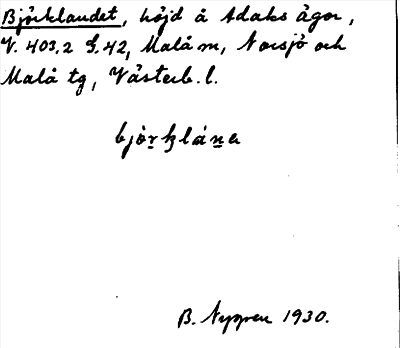 Björklandet, höjd å Adaks ägor,
V. 403,2 S. 42, Malå m, Norsjö och
Malå tg, Västerb. l.
björkláne
B. Nygren 1930.